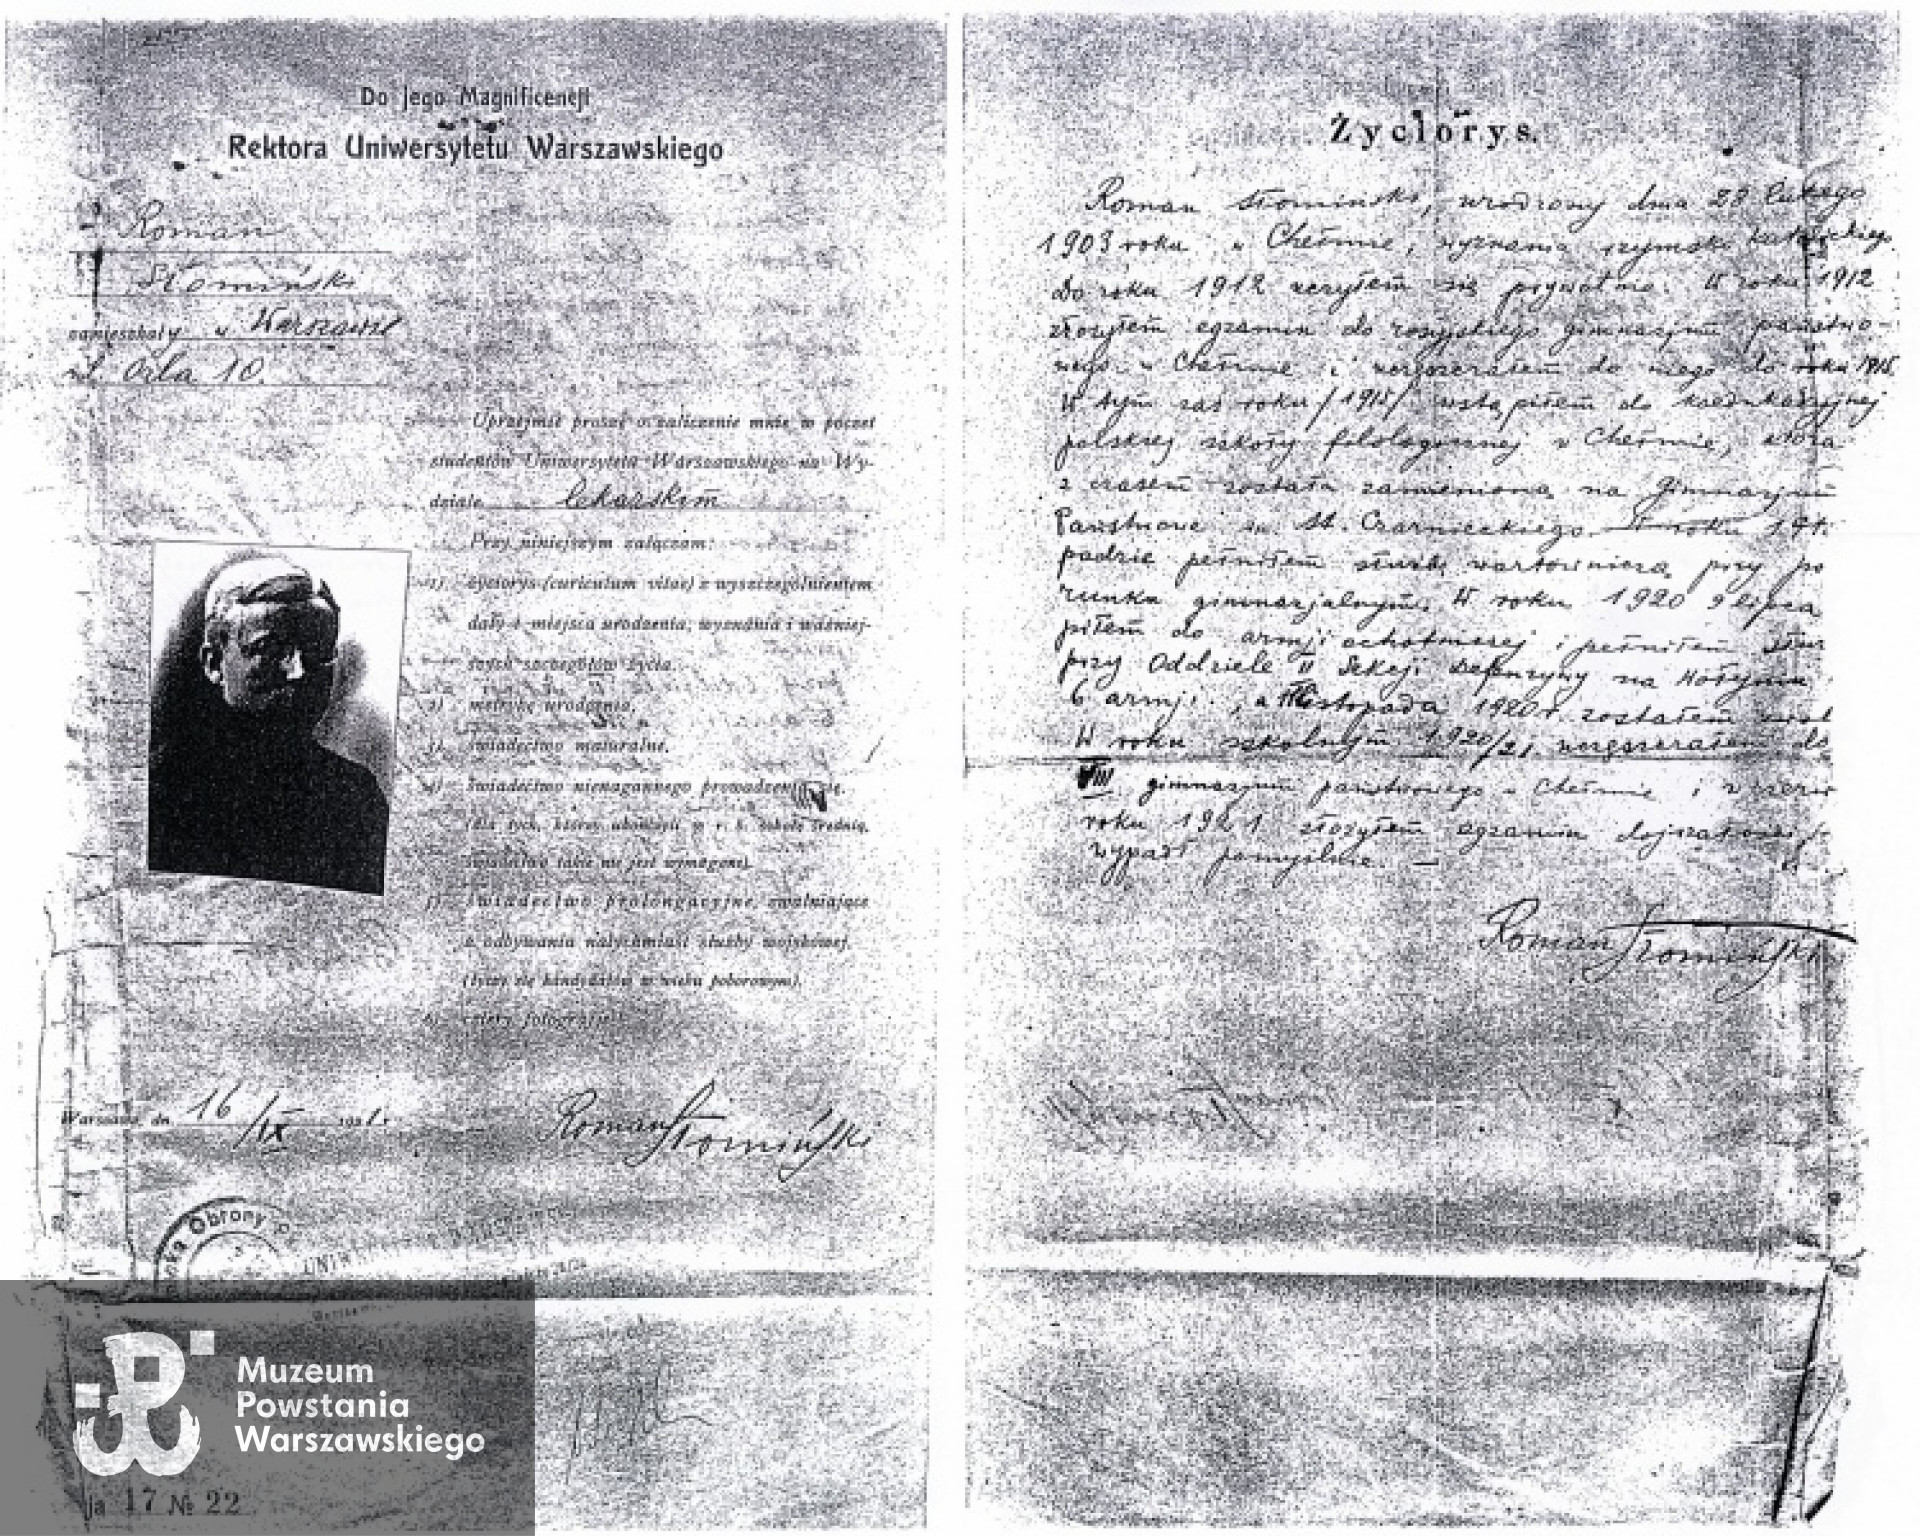 Do Jego Magnificencji
Rektora Uniwersytetu Warszawskiego
Roman
Słomiński
zamieszkały w Warszawie
ul. Orla 10.
Uprzejmie proszę o zaliczenie mnie w poczet
studentów Uniwersytetu Warszawskiego na Wy-
dziale lekarskim
Przy niniejszym załączam:
1) życiorys (curiculum vitae) z wyszczególnieniem
daty i miejsca urodzenia, wyznania i ważniej-
szych szczegółów życia.
2) metrykę urodzenia.
3) świadectwo maturalne.
4) świadectwo nienagannego prowadzenia się.
(dla tych, którzy ukończyli w r. b. szkołę średnią,
świadectwo takie nie jest wymagane).
5) świadectwo prolongacyjne, zwalniające
z odbywania natychmiast służby wojskowej.
(tyczy się kandydatów w wieku poborowym).
6) cztery fotografje.
Warszawa, dn. 16/IX 1921 r.
Roman Słomiński
Obrony
Muzeum
Powstania
Warszawskiego
ja 17 № 22
Życiorys.
Roman Słomiński, urodzony dnia 23 lutego
1903 roku w Chełmie, wyznania rzymsko katolickiego.
Do roku 1912 uczyłem się prywatnie. W roku 1912
złożyłem egzamin do rosyjskiego gimnazjum państwo-
wego w Chełmie i uczęszczałem do niego do roku 1915.
W tym zaś roku /1915/ wstąpiłem do koedukacyjnej
polskiej szkoły filologicznej w Chełmie, która
z czasem została zamieniona na Gimnazjum
Państwowe im. St. Czarnieckiego. roku 191
padzie pełniłem służbę wartowniczą przy po
runku gimnazjalnym. W roku 1920 9 lipca
piłem do armji ochotniczej i pełniłem służ
przy Oddziele II Sekcji Defenzywy na Wołyniu
6 armji, a listopada 1920 r. zostałem zwol
W roku szkolnym 1920/21 uczęszczałem do
VIII gimnazjum państwowego w Chełmie i w czerw
roku 1921 złożyłem egzamin dojrzałości,
wypadł pomyślnie. —
Roman Słomiński